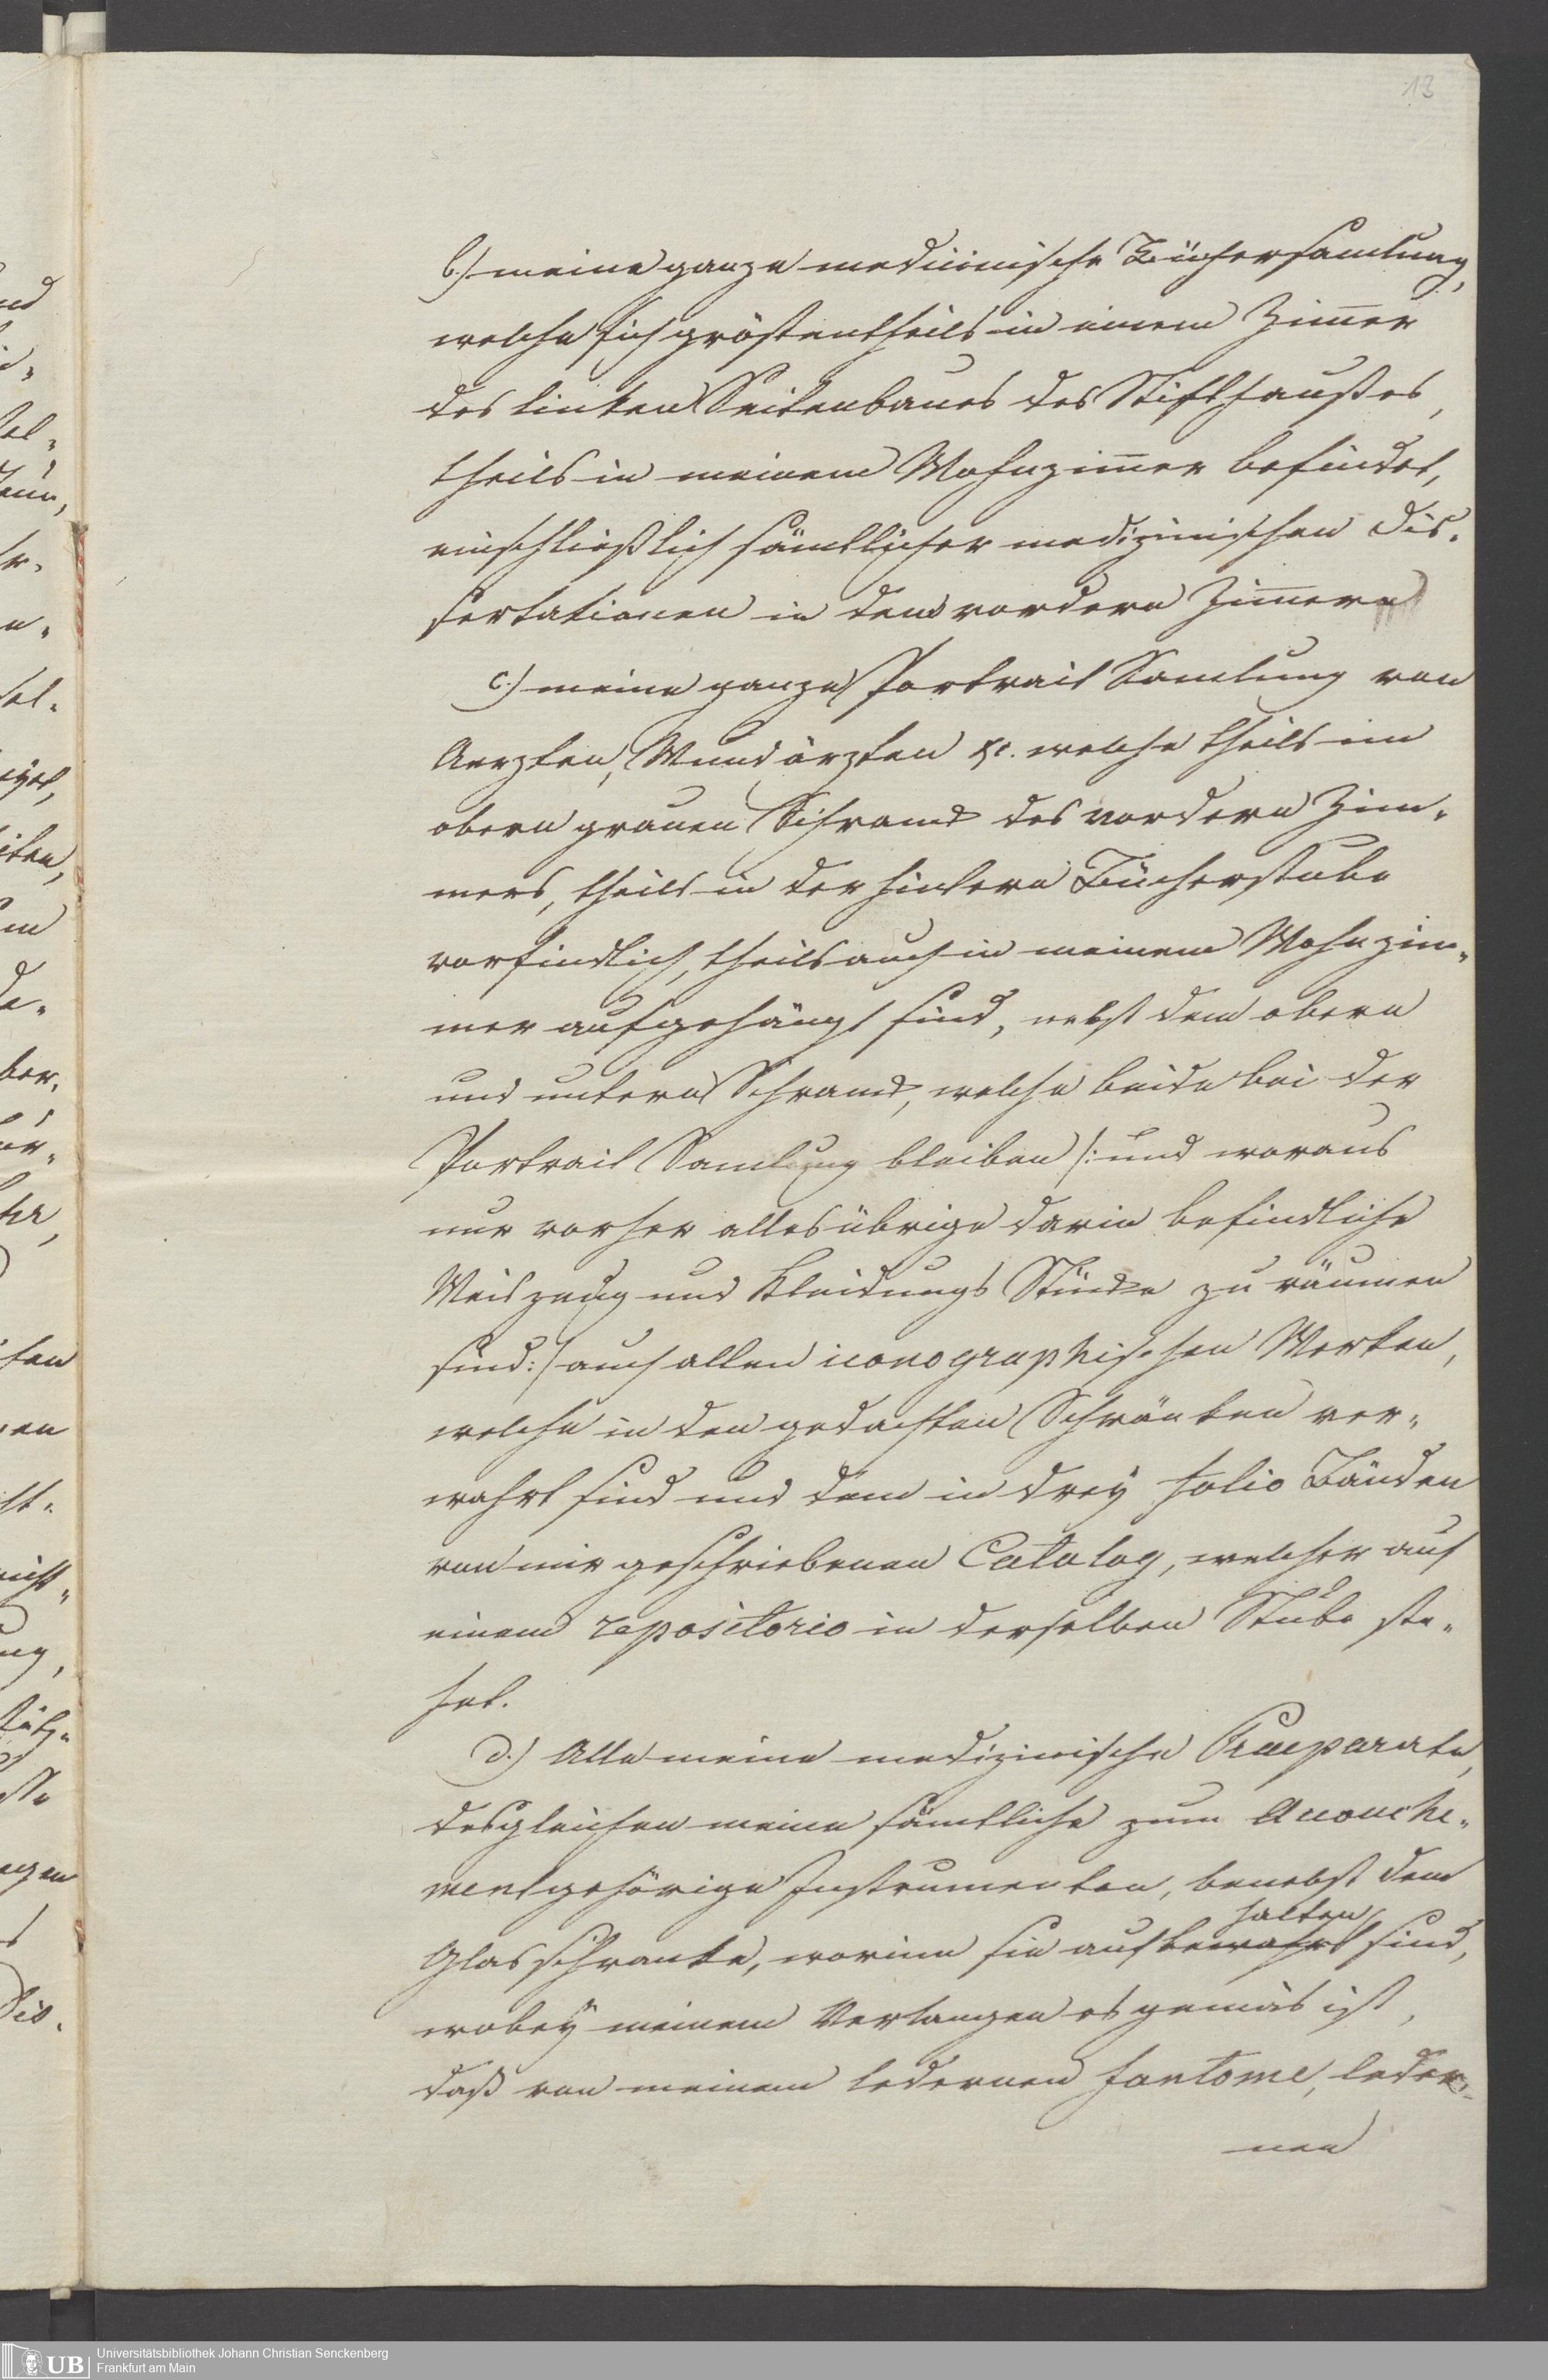 13
b.) meine ganze medicinische Büchersamlung,
welche sich gröstentheils in einem Zimer
des linken Seitenbaues des Stifthaußes,
theils in meinem Wohnzimer befindet,
einschließlich sämtlicher medizinischen Dis-
sertationen in dem vordern Zimmern
c.) meine ganze Portrait Samlung von
Aerzten, Wundärzten &c. welche theils im
obern grauen Schranck des vordern Zim-
mers, theils in der hintern Bücherstube
vorfindlich, theils auch in meinem Wohnzim-
mer aufgehängt sind, nebst dem obern
und untern Schranck, welche beide bei der
Portrait Samlung bleiben /: und woraus
nur vorher alles übrige darin befindliche
Weiszeug und Kleidungs Stücke zu räumen
sind :/ auch allen iconographischen Werken,
welche in den gedachten Schränken ver-
wahrt sind und dem in drey Folio Bänden
von mir geschriebenen Catalog, welcher auf
einem repositorio in derselben Stube ste-
het.
d.) Alle meine medizinische Praeparate,
desgleichen meine sämtliche zum Accouche-
ment gehörige Instrumenten, benebst dem
halten
Glasschranke, worinn sie aufbewahrt sind,
wobey meinem Verlangen es gemäs ist,
daß von meinem ledernen Fantome, leder-
nen
Universitätsbibliothek Johann Christian Senckenberg
Frankfurt am Main
UB